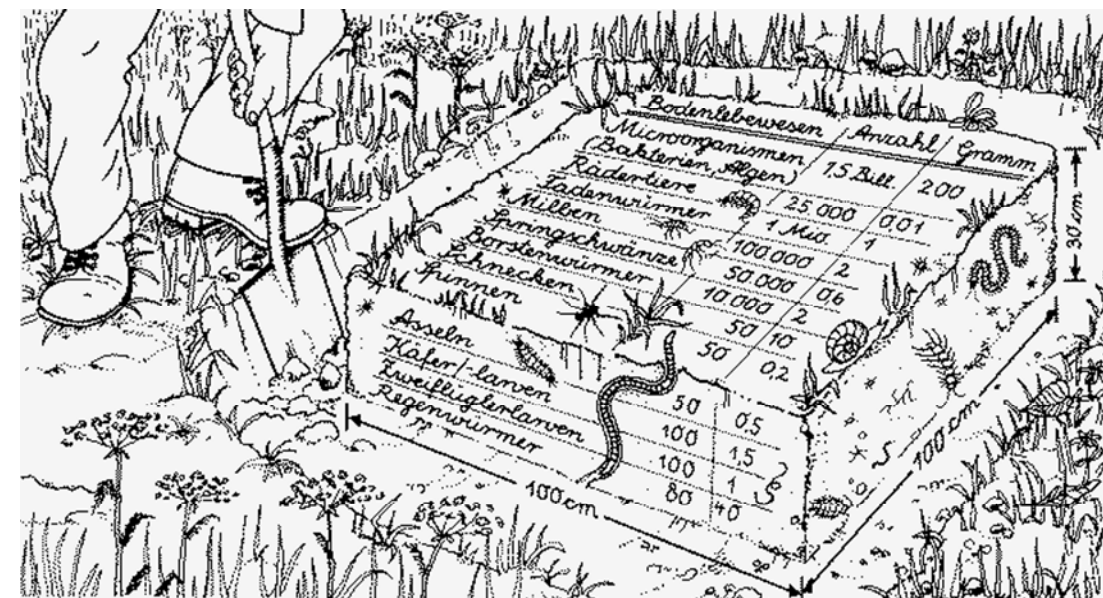 Bodenlebewesen Anzahl Gramm
Microorganismen
Bakterien, Algen) 1,5 Bill. 200
Rädertiere 25.000 0,01
Fadenwürmer 1 Mio. 1
Milben 100.000 2
Springschwänze 50.000 0,6
Borstenwürmer 10.000 2
Schnecken 50 10
Spinnen 50 0,2
Asseln 50 0,5
Käfer/-larven 100 1,5
Zweiflüglerlarven 100 1
Regenwürmer 80 40
100 cm
100 cm
30 cm